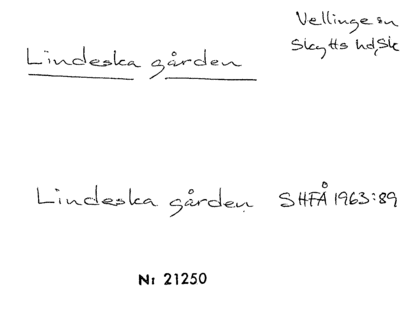 Vellinge sn
Skytts hd, Sk
Lindeska gården
Lindeska gården SHFÅ 1963:89
Nr 21250